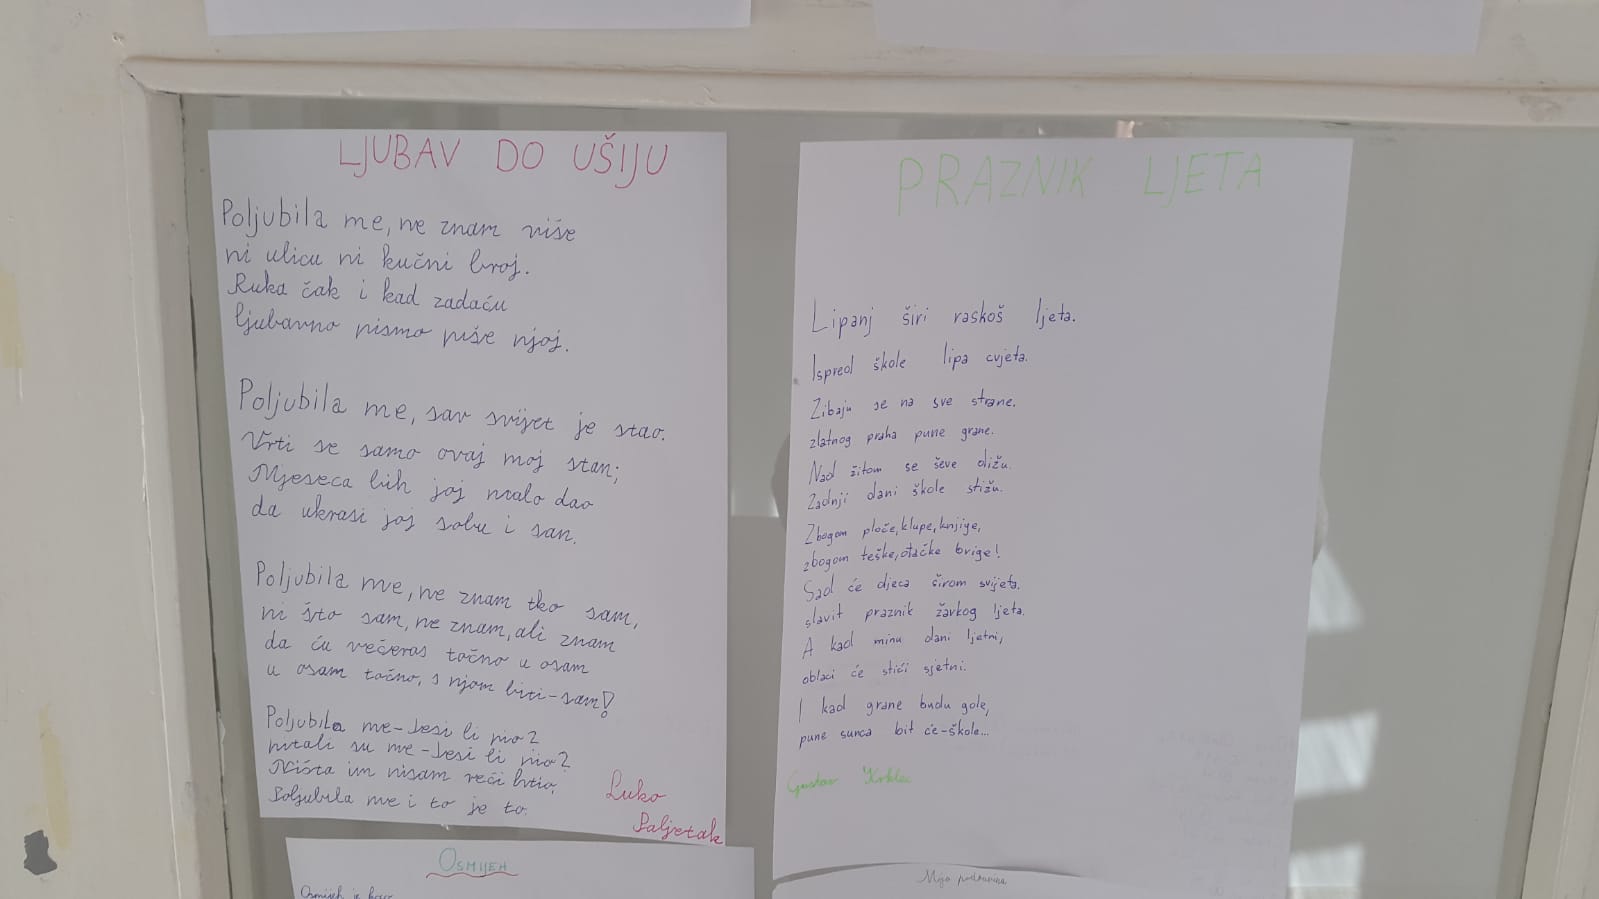 LJUBAV DO UŠIJU
Poljubila me, ne znam više
ni ulicu ni kučni broj.
Ruka čak i kad zadaću
ljubavno pismo piše njoj.
Poljubila me, sav svijet je stao.
Vrti se samo ovaj moj stan;
Mjeseca bih joj malo dao
da ukrasi joj sobu i san.
Poljubila me, ne znam tko sam,
ni što sam, ne znam, ali znam
da ću večeras točno u osam
u osam točno, s njom biti-sam!
Poljubila me-Jesi li pio?
pitali su me-Jesi li pio?
Ništa im nisam reći htio,
Poljubila me i to je to.
Luko
Paljetak
PRAZNIK LJETA
Lipanj širi raskoš ljeta.
Ispred škole lipa cvjeta.
Zibaju se na sve strane.
zlatnog praha pune grane.
Nad žitom se ševe dižu.
Zadnji dani škole stižu.
Zbogom ploče, klupe, knjige,
zbogom teške, đačke brige!
Sad će djeca širom svijeta.
slavit praznik žarkog ljeta.
A kad minu dani ljetni,
oblaci će stići sjetni.
I kad grane budu gole,
pune sunca bit će-škole...
Gustav Krklec
OSMIJEH
Osmijeh je
Moja domovina